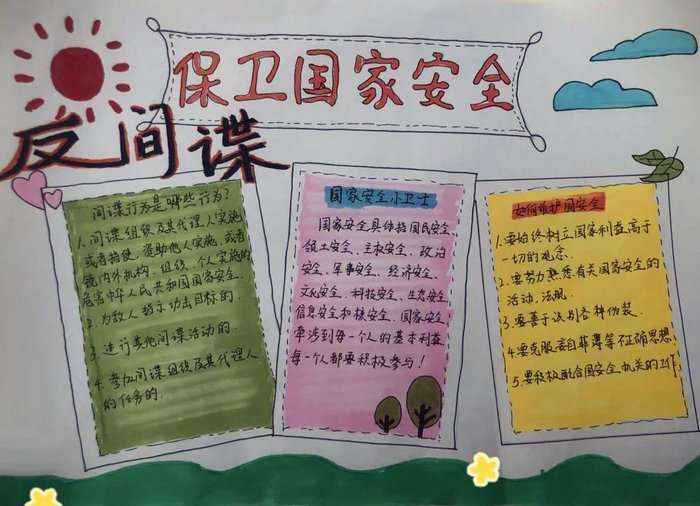 保卫国家安全
反间谍
间谍行为是哪些行为?
1.间谍组织及其代理人实施
或者指使、资助他人实施,或者
境内外机构、组织、个人实施的
危害中华人民共和国国家安全.
2.为敌人指示功击目标的.
3.进行其他间谍活动的.
4.参加间谍组织及其代理人
的任务的.
国家安全小卫士
国家安全具体指国民安全、
领土安全、主权安全、政治
安全、军事安全、经济安全、
文化安全、科技安全、生态安全
信息安全和核安全、国家安全
牵涉到每一个人的基本利益
每一个都要积极参与!
如何维护国安全
1.要始终树立国家利益高于
一切的观念.
2.要努力熟悉有关国家安全的
活动、法规.
3.要善于识别各种伪装.
4.要克服妄自菲薄等不正确思想.
5.要积极配合国安全机关的工作.